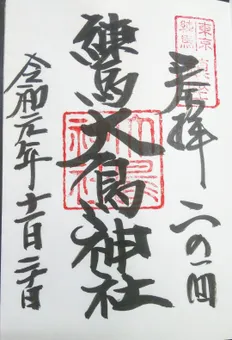 東京
練馬
奉拝 二の酉
練馬大鳥神社
大鳥
神社
令和元年十一月二十日